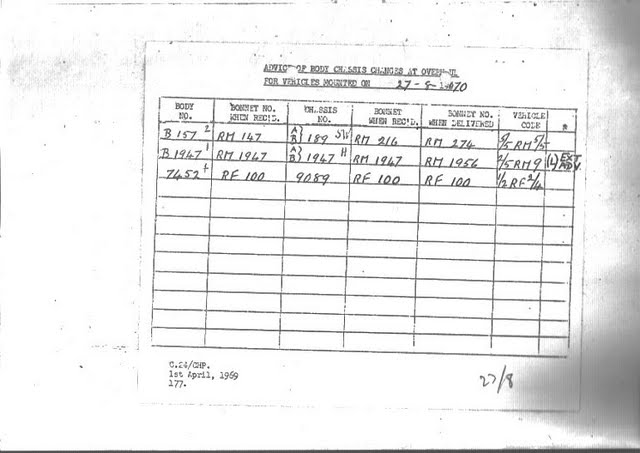 ADVICE OF BODY CHASSIS CHANGES AT OVERHAUL
FOR VEHICLES MOUNTED ON 27-8-1970
BODY NO. BONNET NO. WHEN REC'D. CHASSIS NO. BONNET WHEN REC'D. BONNET NO. WHEN DELIVERED VEHICLE CODE *
B 157 2 RM 147 A) B) 189 RM 214 RM 274 5/5
B 1947 1 RM 1947 A) B) 1947 H RM 1947 RM 1956 2/5 RM 9 (L) EXT ADV.
7452 RF 100 9089 RF 100 RF 100 1/2 RF 2/4
C.24/CHP.
1st April, 1969
177.
27/8